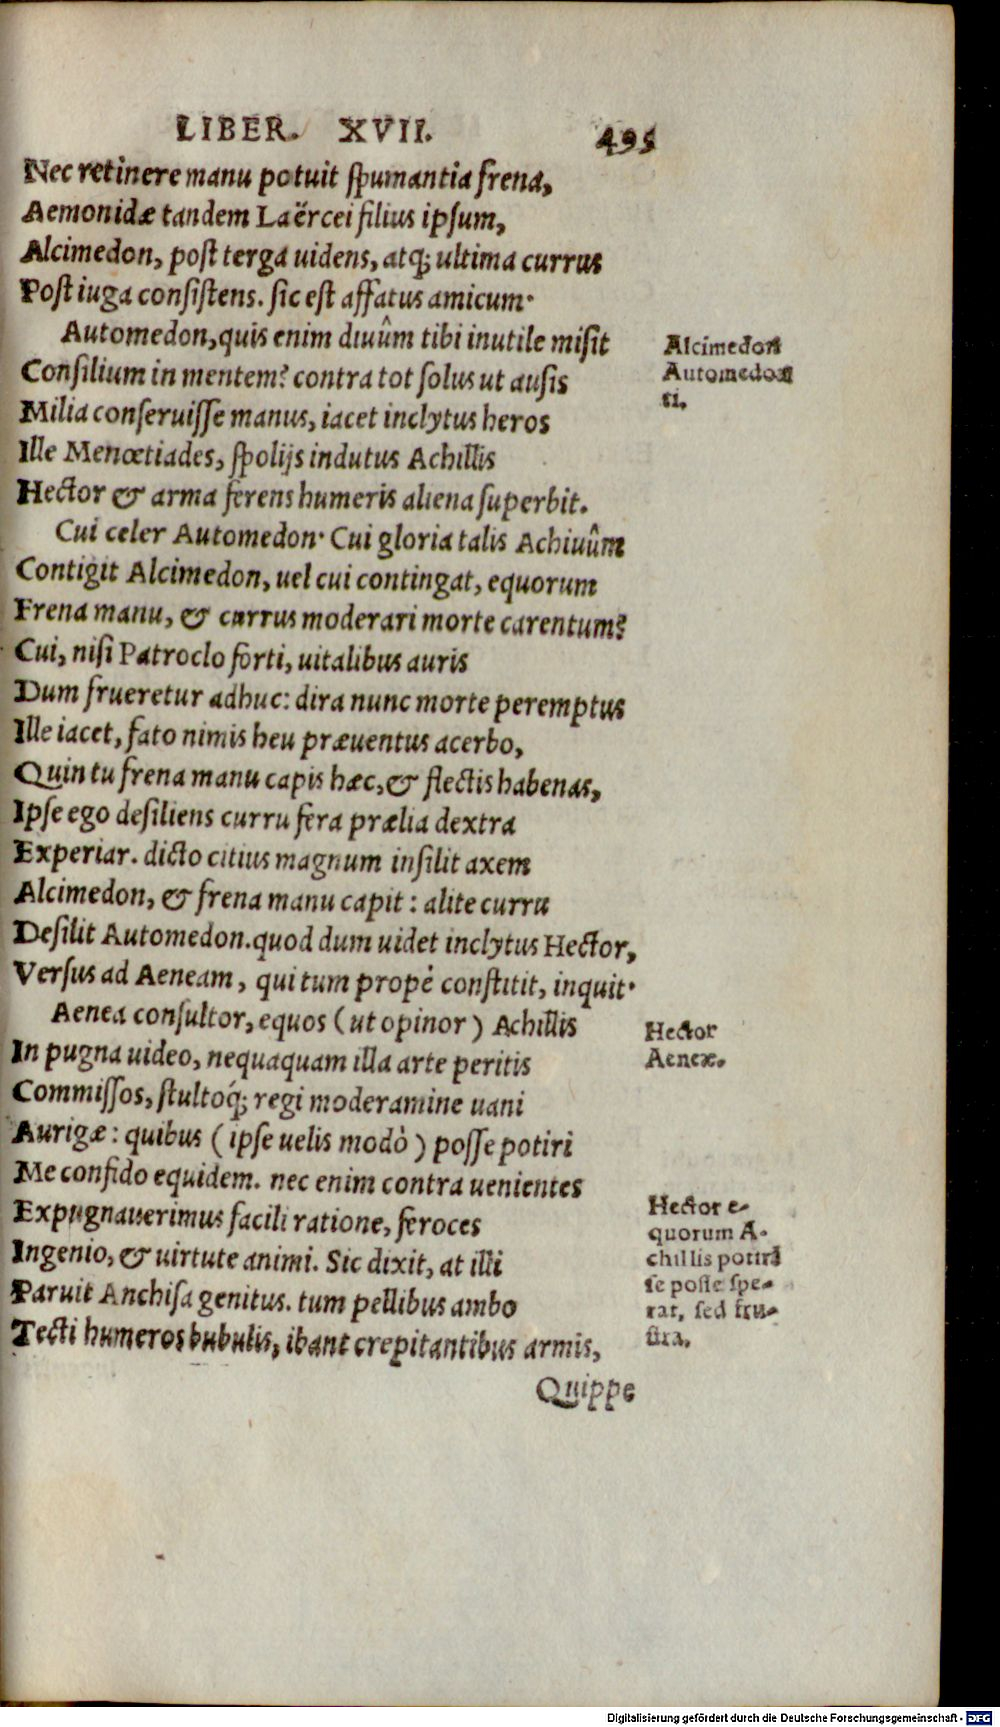 LIBER. XVII. 495
Nec retinere manu potuit spumantia frena,
Aemonidæ tandem Laërcei filius ipsum,
Alcimedon, post terga uidens, atq; ultima currus
Post iuga consistens. sic est affatus amicum.
Automedon, quis enim diuûm tibi inutile misit
Consilium in mentem? contra tot solus ut ausis
Milia conseruisse manus, iacet inclytus heros
Ille Menœtiades, spolijs indutus Achillis
Hector & arma ferens humeris aliena superbit.
Cui celer Automedon. Cui gloria talis Achiuûm
Contigit Alcimedon, uel cui contingat, equorum
Frena manu, & currus moderari morte carentum?
Cui, nisi Patroclo forti, uitalibus auris
Dum frueretur adhuc: dira nunc morte peremptus
Ille iacet, fato nimis heu præuentus acerbo,
Quin tu frena manu capis hæc, & flectis habenas,
Ipse ego desiliens curru fera prælia dextra
Experiar. dicto citius magnum insilit axem
Alcimedon, & frena manu capit: alite curru
Desilit Automedon. quod dum uidet inclytus Hector,
Versus ad Aeneam, qui tum propè constitit, inquit.
Aenea consultor, equos (ut opinor) Achillis
In pugna uideo, nequaquam illa arte peritis
Commissos, stultoq́; regi moderamine uani
Aurigæ: quibus (ipse uelis modò) posse potiri
Me confido equidem. nec enim contra uenientes
Expugnauerimus facili ratione, feroces
Ingenio, & uirtute animi. Sic dixit, at illi
Paruit Anchisa genitus. tum pellibus ambo
Tecti humeros bubulis, ibant crepitantibus armis,
Quippe
Alcimedon
Automedon
ti.
Hector
Aeneæ.
Hector e-
quorum A-
chillis potiri
se posse spe-
rat, sed fru-
stra.
Digitalisierung gefördert durch die Deutsche Forschungsgemeinschaft - DFG